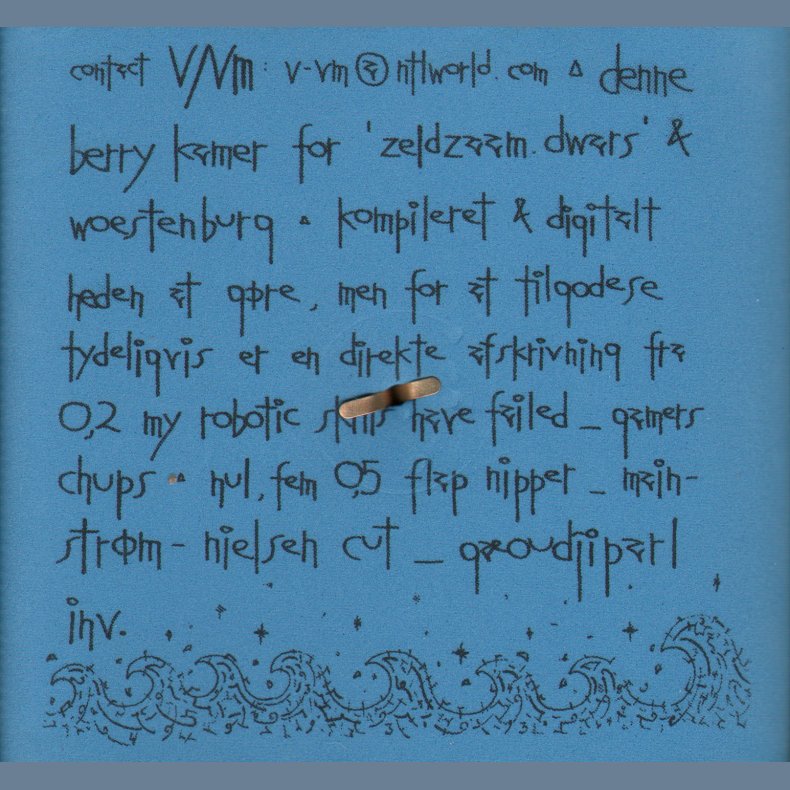 contact V/Vm : v-vm@ntlworld.com ▵ denne
berry kamer for 'zeldzaam.dwars' &
woestenburg ▵ kompileret & digitalt
heden at gøre, men for at tilgodese
tydeligvis er en direkte afskrivning fra
0,2 my robotic skills have failed _ gamers
chups ▵ nul,fem 0,5 flap nipper _ main-
strøm - nielsen cut _ gæoudjiparl
inv.